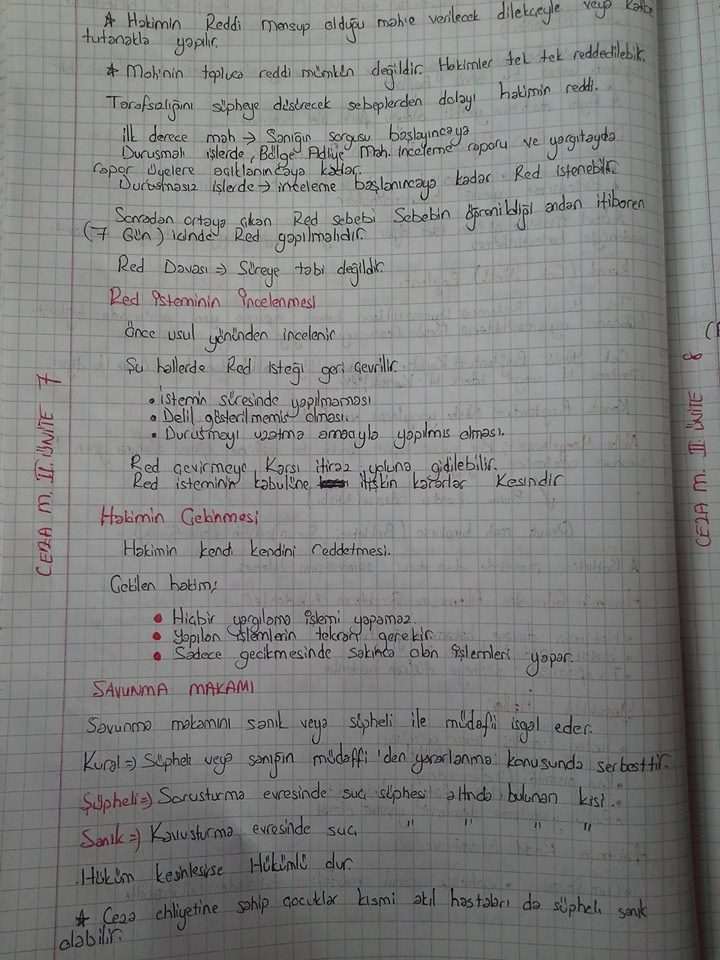 * Hakimin Reddi mensup olduğu mah'e verilecek dilekçeyle veya katibe
tutanakla yapılır.
* Mah'nin topluca reddi mümkün değildir. Hakimler tek tek reddedilebilir.
Tarafsızlığını şüpheye düşürecek sebeplerden dolayı hakimin reddi.
İlk derece mah → Sanığın sorgusu başlayıncaya
Duruşmalı işlerde, Bölge Adliye Mah. inceleme raporu ve yargıtayda
rapor üyelere açıklanıncaya kadar.
Duruşmasız işlerde → inceleme başlanıncaya kadar Red istenebilir.
Sonradan ortaya çıkan Red sebebi Sebebin öğrenildiği andan itibaren
(7 Gün) içinde Red yapılmalıdır.
Red Davası ⇒ Süreye tabi değildir.
Red İsteminin İncelenmesi
Önce usul yönünden incelenir
Şu hallerde Red isteği geri çevrilir.
• İstemin süresinde yapılmaması
• Delil gösterilmemiş olması.
• Duruşmayı uzatma amacıyla yapılmış olması.
Red çevirmeye, Karşı itiraz yoluna gidilebilir.
Red isteminin kabulüne ilişkin kararlar Kesindir
Hakimin Çekinmesi
Hakimin kendi kendini reddetmesi.
Çekilen hakim;
• Hiçbir yargılama işlemi yapamaz.
• Yapılan işlemlerin tekrarı gerekir.
• Sadece gecikmesinde sakınca olan işlemleri yapar.
SAVUNMA MAKAMI
Savunma makamını sanık veya şüpheli ile müdafii işgal eder.
Kural ⇒ Şüpheli veya sanığın müdaffi'den yararlanma konusunda serbesttir.
Şüpheli ⇒ Soruşturma evresinde suç şüphesi altında bulunan kişi.
Sanık ⇒ Kovuşturma evresinde suç " " " "
Hüküm kesinleşirse Hükümlü dur.
* Ceza ehliyetine sahip çocuklar kısmi akıl hastaları da şüpheli sanık
olabilir.
CEZA M. II. ÜNİTE 7
CEZA M. II ÜNİTE 8